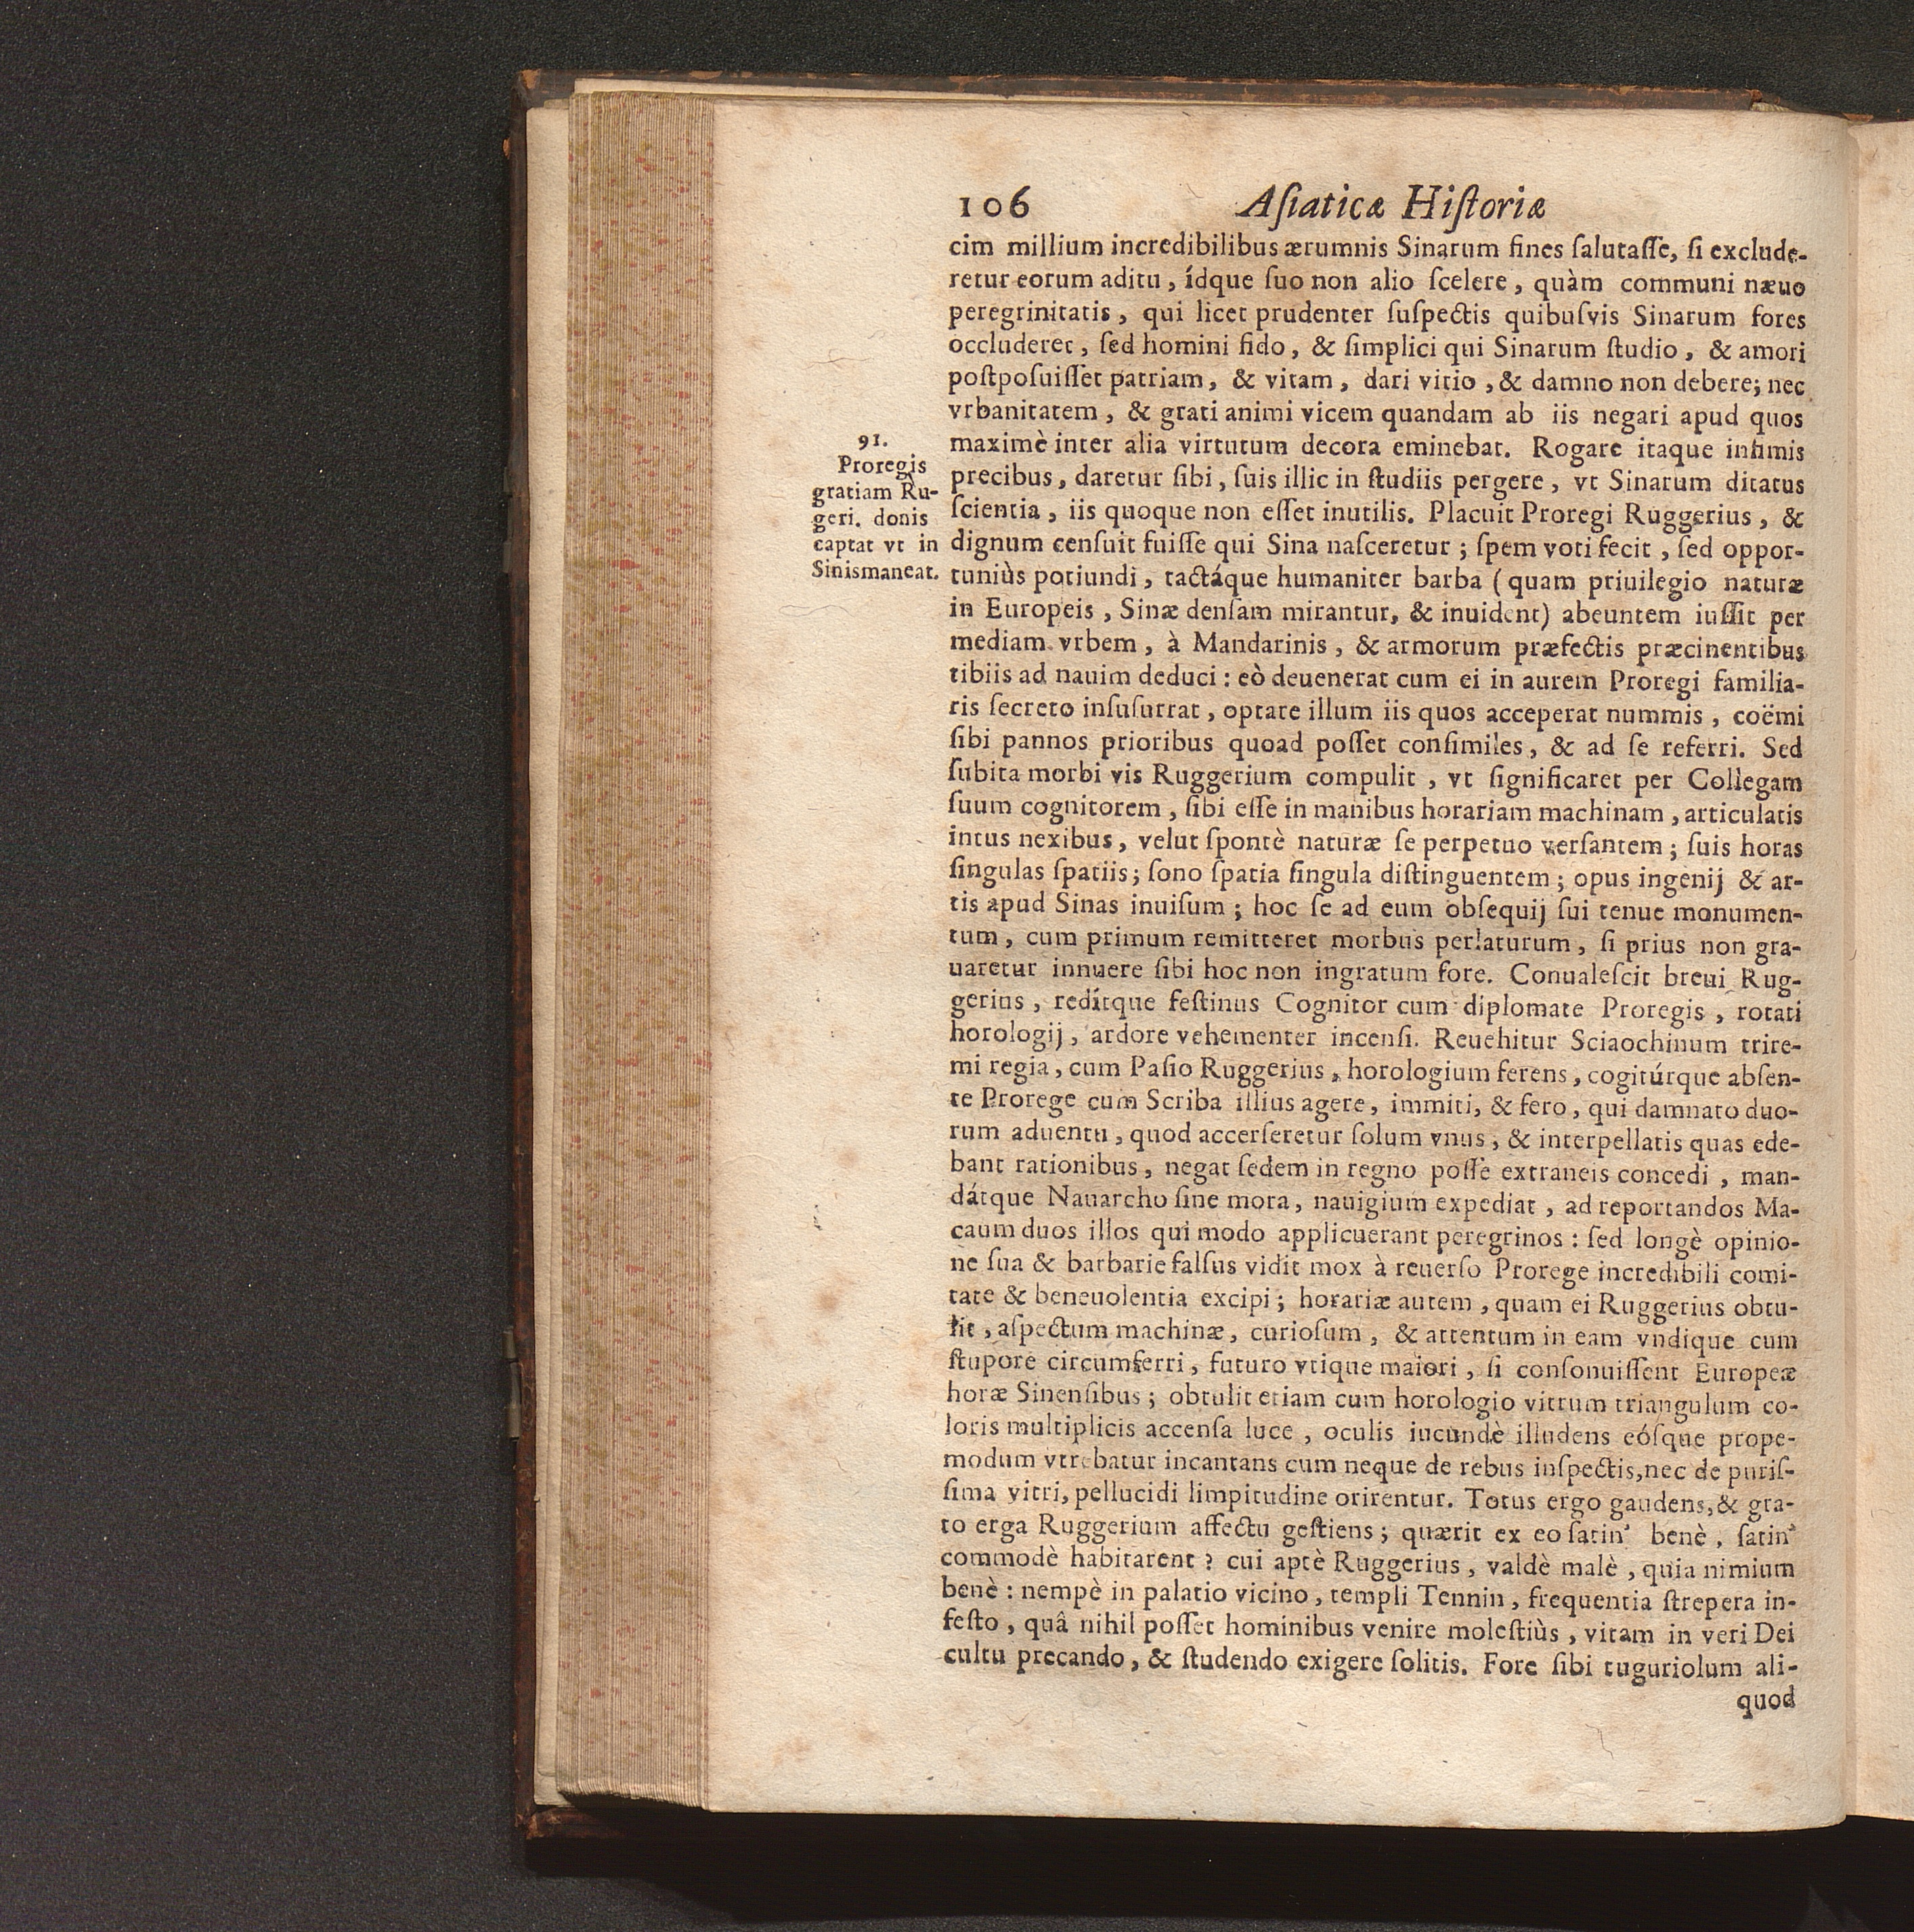 106 Aſiaticæ Hiſtoriæ
cim millium incredibilibus ærumnis Sinarum fines ſalutaſſe, ſi exclude-
retur eorum aditu, ídque ſuo non alio ſcelere, quàm communi næuo
peregrinitatis, qui licet prudenter ſuſpectis quibuſvis Sinarum fores
occluderet, ſed homini fido, & ſimplici qui Sinarum ſtudio, & amori
poſtpoſuiſſet patriam, & vitam, dari vitio, & damno non debere; nec
vrbanitatem, & grati animi vicem quandam ab iis negari apud quos
maximè inter alia virtutum decora eminebat. Rogare itaque infimis
precibus, daretur ſibi, ſuis illic in ſtudiis pergere, vt Sinarum ditatus
ſcientia, iis quoque non eſſet inutilis. Placuit Proregi Ruggerius, &
dignum cenſuit fuiſſe qui Sina naſceretur; ſpem voti fecit, ſed oppor-
tuniùs potiundi, tactáque humaniter barba (quam priuilegio naturæ
in Europeis, Sinæ denſam mirantur, & inuident) abeuntem iuſſit per
mediam vrbem, à Mandarinis, & armorum præfectis præcinentibus
tibiis ad nauim deduci: eò deuenerat cum ei in aurem Proregi familia-
ris ſecreto inſuſurrat, optare illum iis quos acceperat nummis, coëmi
ſibi pannos prioribus quoad poſſet conſimiles, & ad ſe referri. Sed
ſubita morbi vis Ruggerium compulit, vt ſignificaret per Collegam
ſuum cognitorem, ſibi eſſe in manibus horariam machinam, articulatis
intus nexibus, velut ſpontè naturæ ſe perpetuo verſantem; ſuis horas
ſingulas ſpatiis; ſono ſpatia ſingula diſtinguentem; opus ingenij & ar-
tis apud Sinas inuiſum; hoc ſe ad eum obſequij ſui tenue monumen-
tum, cum primum remitteret morbus perlaturum, ſi prius non gra-
uaretur innuere ſibi hoc non ingratum fore. Conualeſcit breui Rug-
gerius, redítque feſtinus Cognitor cum diplomate Proregis, rotati
horologij, ardore vehementer incenſi. Reuehitur Sciaochinum trire-
mi regia, cum Paſio Ruggerius, horologium ferens, cogitúrque abſen-
te Prorege cum Scriba illius agere, immiti, & fero, qui damnato duo-
rum aduentu, quod accerſeretur ſolum vnus, & interpellatis quas ede-
bant rationibus, negat ſedem in regno poſſe extraneis concedi, man-
dátque Nauarcho ſine mora, nauigium expediat, ad reportandos Ma-
caum duos illos qui modo applicuerant peregrinos: ſed longè opinio-
ne ſua & barbarie falſus vidit mox à reuerſo Prorege incredibili comi-
tate & beneuolentia excipi; horariæ autem, quam ei Ruggerius obtu-
lit, aſpectum machinæ, curioſum, & attentum in eam vndique cum
ſtupore circumferri, futuro vtique maiori, ſi conſonuiſſent Europeæ
horæ Sinenſibus; obtulit etiam cum horologio vitrum triangulum co-
loris multiplicis accenſa luce, oculis iucundè illudens eóſque prope-
modum vtrebatur incantans cum neque de rebus inſpectis, nec de puriſ-
ſima vitri, pellucidi limpitudine orirentur. Totus ergo gaudens, & gra-
to erga Ruggerium affectu geſtiens; quærit ex eo ſatin' benè, ſatin'
commodè habitarent? cui aptè Ruggerius, valdè malè, quia nimium
benè: nempè in palatio vicino, templi Tennin, frequentia ſtrepera in-
feſto, quâ nihil poſſet hominibus venire moleſtiùs, vitam in veri Dei
cultu precando, & ſtudendo exigere ſolitis. Fore ſibi tuguriolum ali-
quod
91.
Proregis
gratiam Ru-
geri. donis
captat vt in
Sinis maneat.